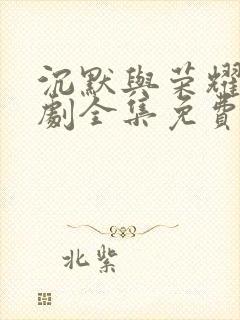 沉默與荣耀
劇全集免費
北紫